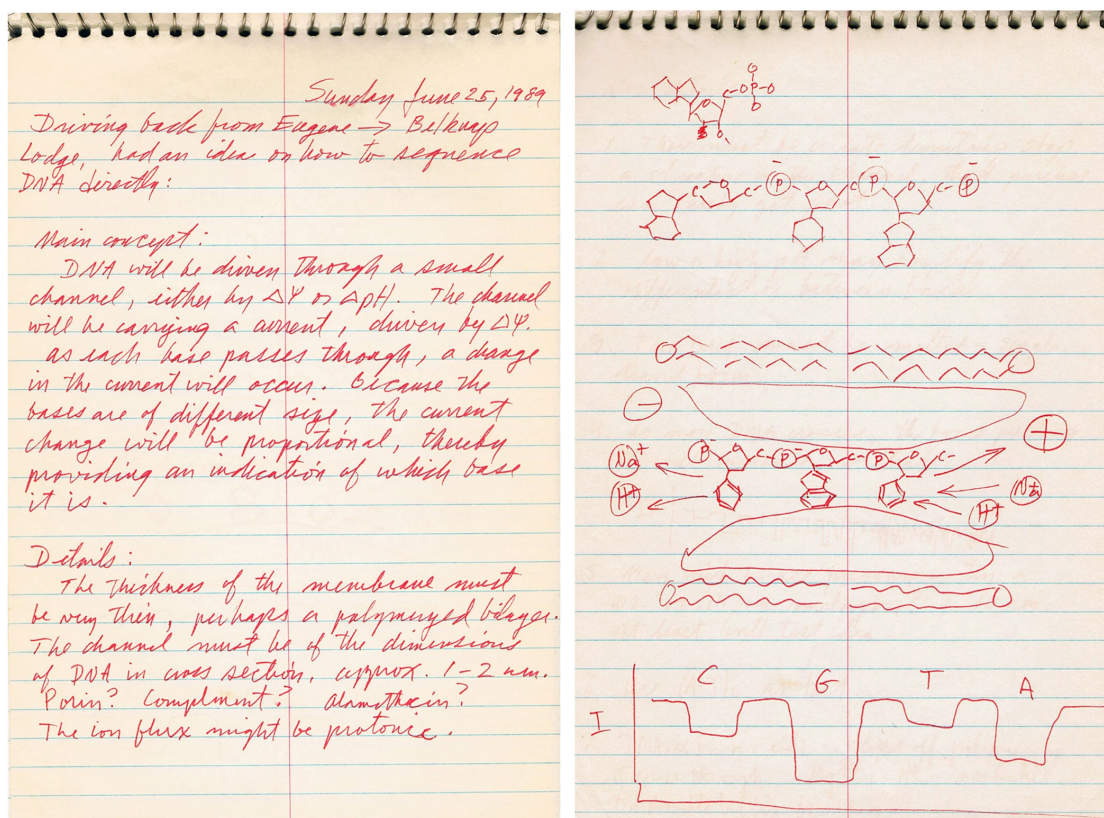 Sunday June 25, 1989
Driving back from Eugene → Belknap
Lodge, had an idea on how to sequence
DNA directly:
Main concept:
DNA will be driven through a small
channel, either by ΔΨ or ΔpH. The channel
will be carrying a current, driven by ΔΨ.
As each base passes through, a change
in the current will occur. Because the
bases are of different size, the current
change will be proportional, thereby
providing an indication of which base
it is.
Details:
The thickness of the membrane must
be very thin, perhaps a polymeryzed bilayer.
The channel must be of the dimensions
of DNA in cross section, approx. 1-2 nm.
Porin? Compliment? Alamethicin?
The ion flux might be protonic.
O
O C-OP-O
O
O
C O C-P O C P O C-P
-
+
P O C-P O C-P O C-
Na+
H+
Na+
H+
C G T A
I